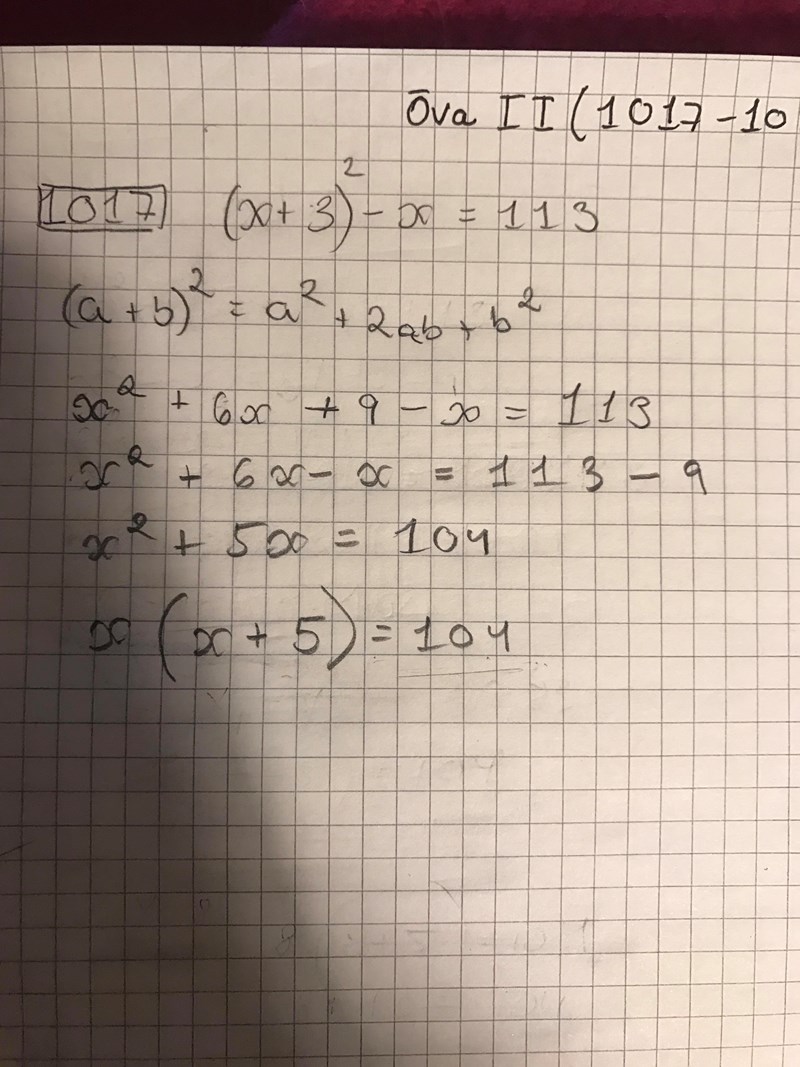 Öva II (1017-10
1017 (x+3)² - x = 113
(a+b)² = a² + 2ab + b²
x² + 6x + 9 - x = 113
x² + 6x - x = 113 - 9
x² + 5x = 104
x (x + 5) = 104